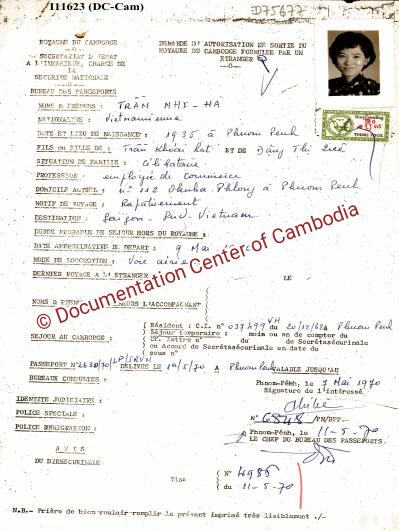 I11623 (DC-Cam)
D75677
ROYAUME DU CAMBODGE
SECRETARIAT D'ETAT
A L'INTERIEUR, CHARGE DE
LA
SECURITE NATIONALE
BUREAU DES PASSEPORTS
DEMANDE D'AUTORISATION DE SORTIE DU
ROYAUME DU CAMBODGE FORMULEE PAR UN
ETRANGER
NOMS & PRENOMS : TRẦN NHI-HA
NATIONALITE : Vietnamienne
DATE ET LIEU DE NAISSANCE : 1935 à Phnom Penh
FILS ou FILLE DE : Trần Khoai Kat ET DE Đặng Thi
SITUATION DE FAMILLE : Célibataire
PROFESSION : employée de commerce
DOMICILE ACTUEL : n° 112 Oknha Phlong à Phnom Penh
MOTIF DE VOYAGE : Rapatriement
DESTINATION : Saigon - Sud-Vietnam
DUREE PREVUE DE SEJOUR HORS DU ROYAUME :
DATE APPROXIMATIVE DE DEPART : 9 Mai
MODE DE LOCOMOTION : Voie aérienne
DERNIER VOYAGE A L'ETRANGER LE
NOMS & PRENOMS L'ACCOMPAGNANT
© Documentation Center of Cambodia
SEJOUR AU CAMBODGE :
Résident : C.I. N° 037499 VH du 20/12/62 à Phnom Penh
Séjour temporaire : mois ou an de compter du
CF. lettre n° du de Secrétasécurinale
ou Accord de Secrétasécurinale en date du
sous n°
PASSEPORT N° 2630/70/LP/SRVN DELIVRE LE 10/5/70 à Phnom Penh VALABLE JUSQU'AU
BUREAUX CONSULTES :
Phnom-Pénh, le 7 Mai 1970
Signature de l'intéressé
IDENTITE JUDICIAIRE :
POLICE SPECIALE :
POLICE IMMIGRATION :
N° 6848 /PN/BPP.-
Phnom-Pénh, le 11-5-70
LE CHEF DU BUREAU DES PASSEPORTS.
AVIS
DU DIRSECURINALE
Visa
N° 4986
du 11-5-70
N.B.- Prière de bien vouloir remplir le présent imprimé très lisiblement ./-